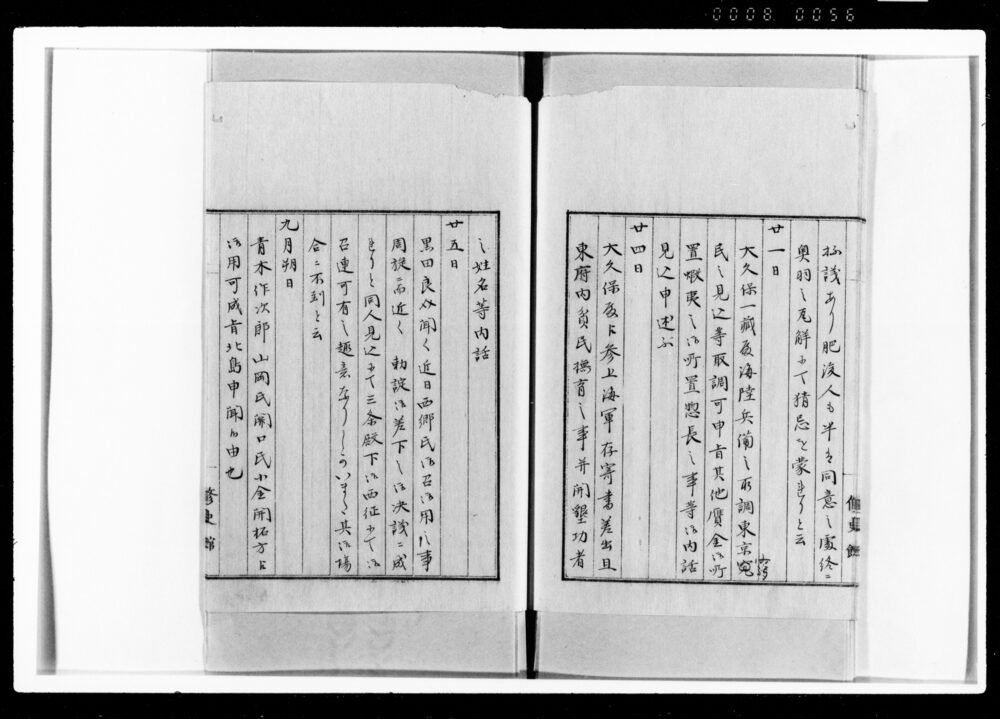 0008 0056
極議あり肥後人も半は同意之處終ニ
奥羽之瓦解ニて猜忌を蒙れりと云
廿一日
大久保一蔵殿海陸兵備之取調東京窮
民之見込等取調可申旨其他贋金御所
置蝦夷之御所置惣長之事等御内話
見込申述ふ
廿四日
大久保殿に参上海軍存寄書差出且
東府内貧民撫育之事并開墾功者
修史館
之姓名等内話
廿五日
黒田良介聞く近日西郷氏御召御用之事
周旋而近く 勅諚御差下し御决議ニ成
れりと同人見込ニて三条殿下御西征ニて御
召連可有之趣意なりしかいまた其御場
合ニ不到と云
九月朔日
青木作次郎山岡氏関口氏小金開拓方に
御用可成旨北島申聞の由也
修史館